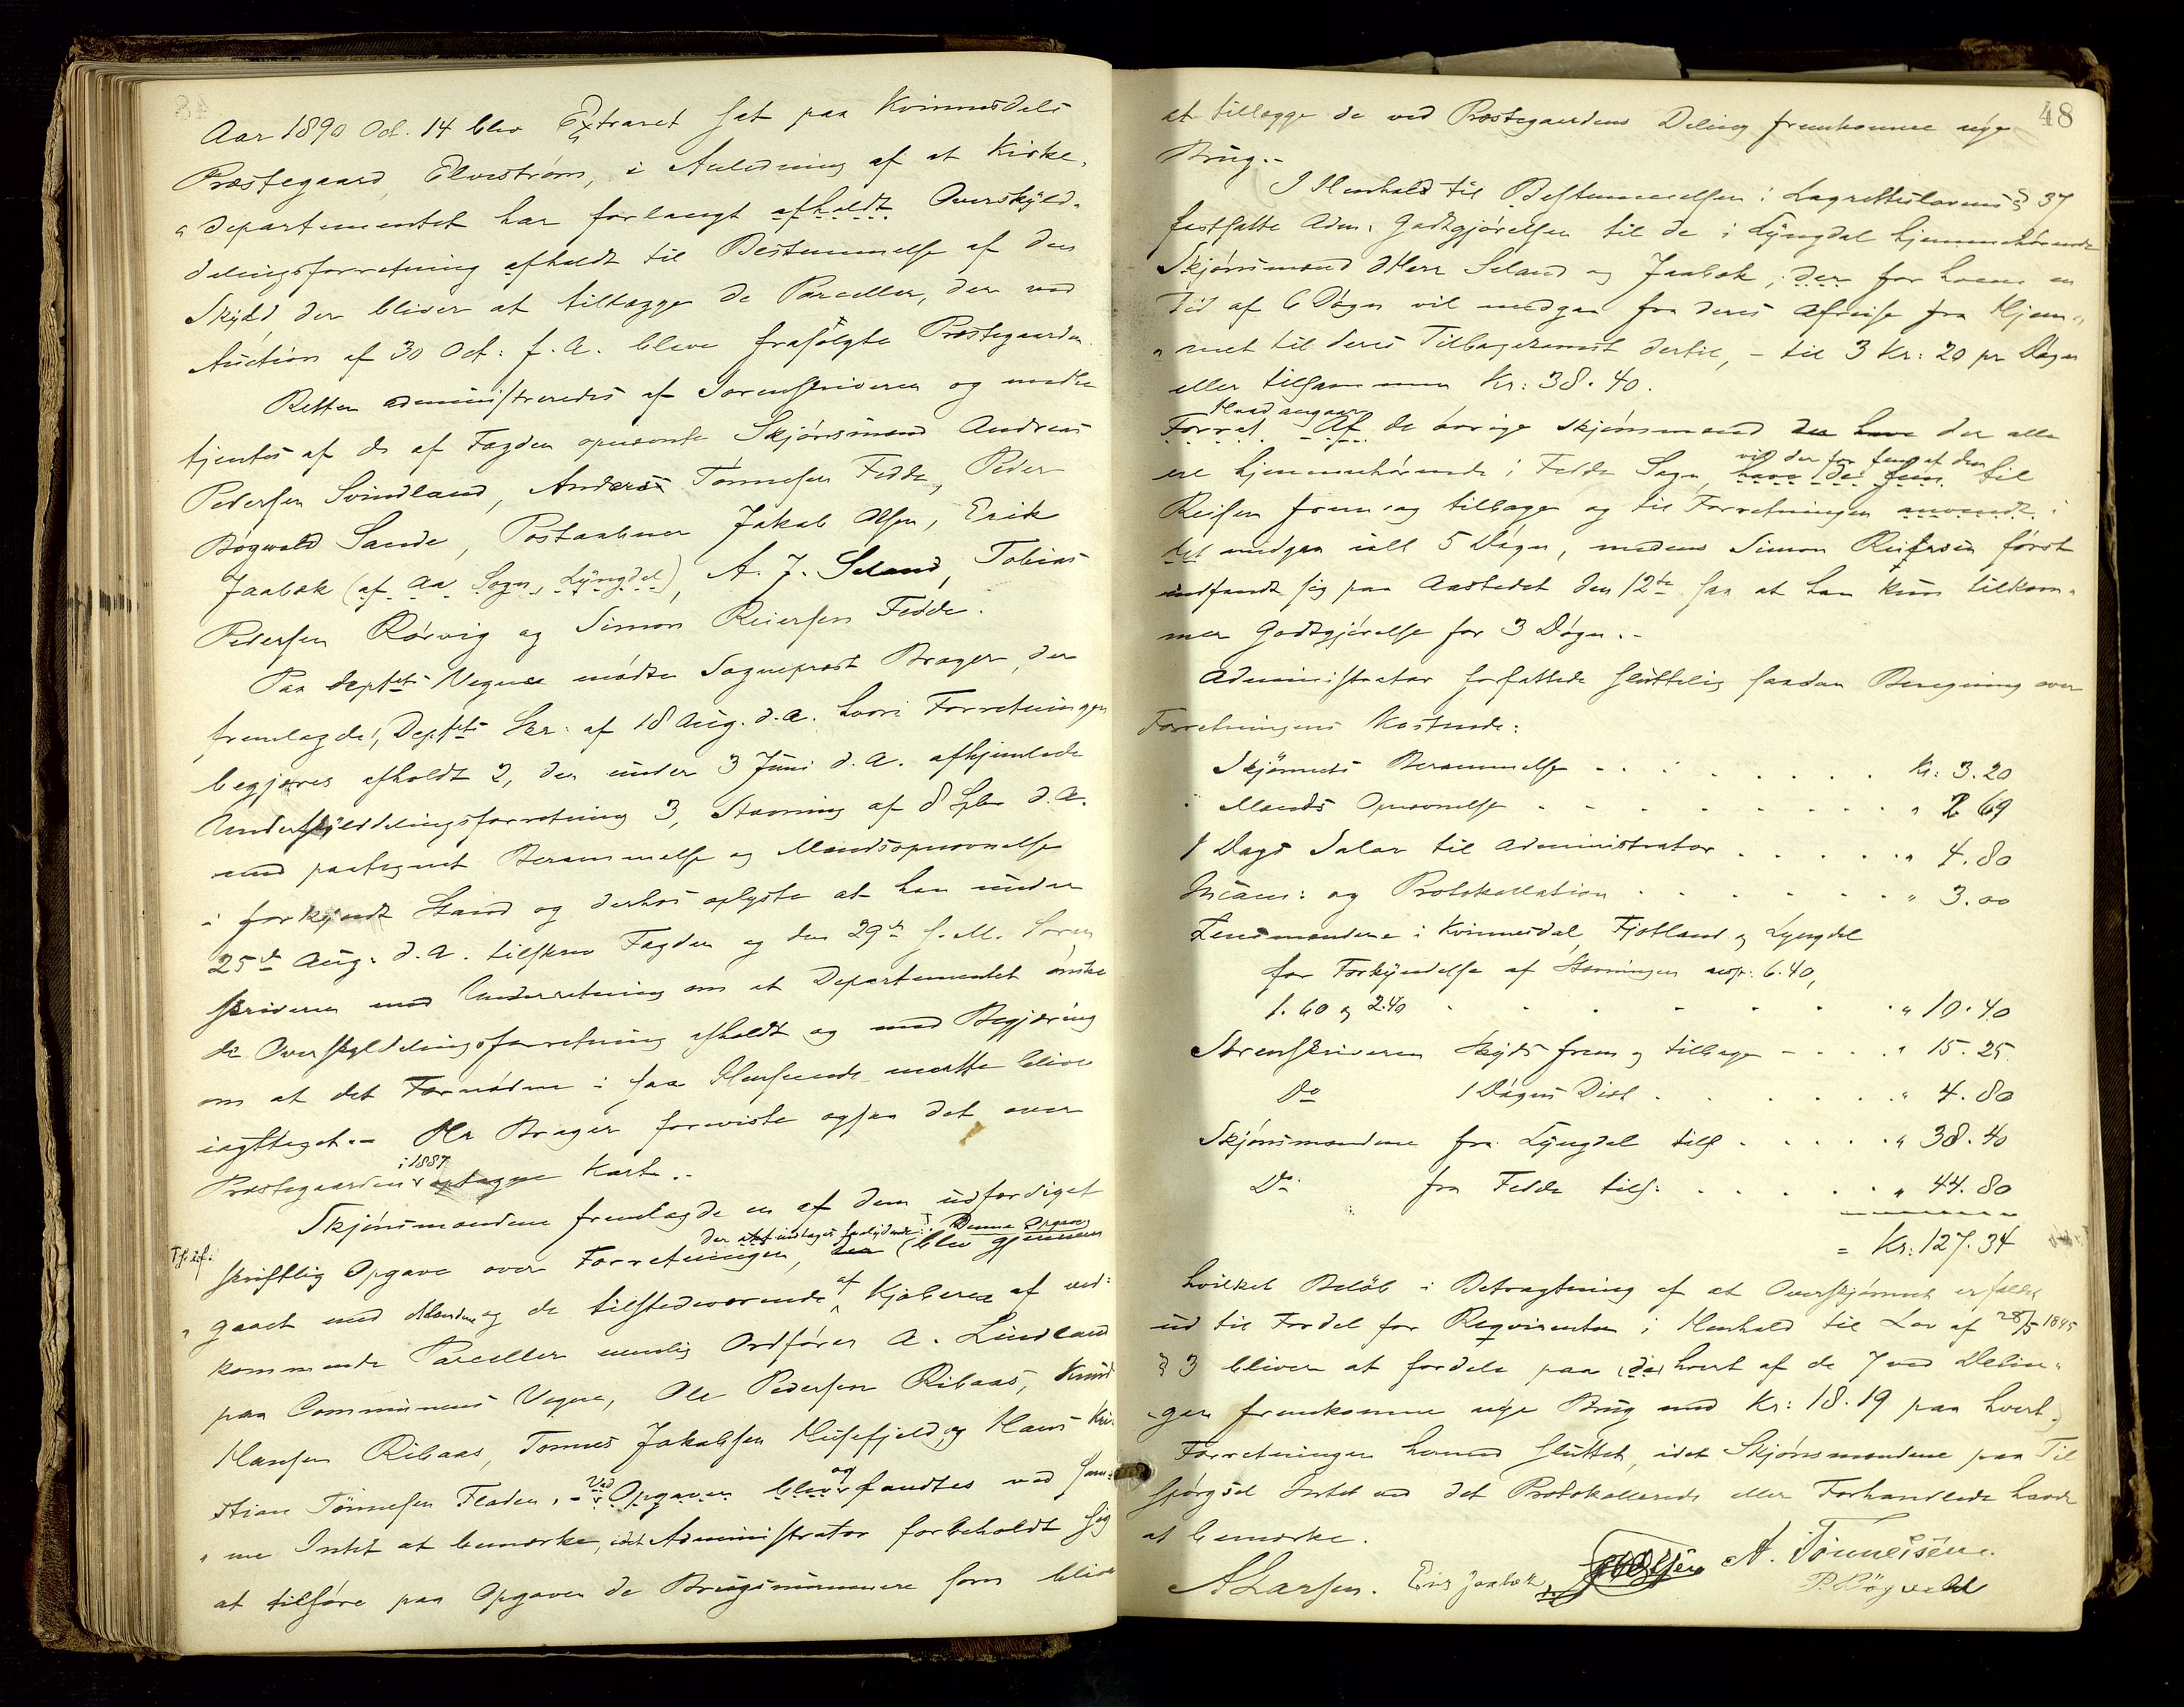 Aar 1890 Oct. 14 blev Extraret sat paa Kvinnesdals
Præstegaard, Elvestrøm, i Anledning af at Kirke-
departementet har forlangt afholdt Overskyld-
delingsforretning afholdt til Bestemmelse af den
Skyld der bliver at tillægge de Parceller, der ved
Auction af 30 Oct: f. A. bleve frasolgte Præstegaarden.
Retten administreredes af Sorenskriveren og medbe-
tjentes af de af Fogden opnævnte Skjønsmænd Andreas
Pedersen Svindland, Anders Tønnesen Fedde, Peder
Bøgvald Sande, Postaabner Jakob Olsen, Erik
Jaabæk (af Aa Sogn, Lyngdal), A. J. Seland, Tobias
Pedersen Rørvig og Simon Reiersen Fedde.
Paa Deptets Vegne mødte Sogneprest Brager, der
fremlagde 1, Deptets Skr: af 18 Aug. d. A. hvori Forretningen
begjæres afholdt 2, den under 3 Juni d. A. afhjemlede
Underskylddelingsforretning 3, Stævning af 8 Spbr d. A.
med paategnet Berammelse og Mandsopnævnelse
i forkyndt Stand og derhos oplyste at han under
25de Aug. d. A. tilskrev Fogden og den 29de s. M. Soren-
skriveren med Underretning om at Departementet ønske-
de Overskyldelingsforretning afholdt og med Begjæring
om at det Fornødne i saa Henseende maatte blive
iagttaget. - Hr Brager foreviste ogsaa det over
Præstegaarden i 1887 optagne Kart. -
Skjønsmændene fremlagde en af dem udfærdiget
T. h. i f. skriftlig Opgave over Forretningen, der indtages saalydende: Denne Opgave blev gjennem-
gaaet med Mændene og de tilstedeværende af Kjøberne af ved-
kommende Parceller nemlig Ordfører A. Lindland
paa Communens Vegne, Ole Pedersen Ribaas, Knud
Hansen Ribaas, Tomes Jakobsen Husefjeld, og Hans Kri-
stian Tønnesen Fladen. - Ved Opgaven blev og fandtes ved sam-
me Intet at bemærke, idet Administrator forbeholdt sig
at tilføre paa Opgaven de Brugsnummere som blive
48
at tillægge de ved Præstegaardens Deling fremkomne nye
Brug. -
I Henhold til Bestemmelsen i Lagretteslovens § 37
fastsatte Adm: Godtgjørelsen til de i Lyngdal hjemmehørende
Skjønsmænd DHerr Seland og Jaabæk, der for hvem en
Tid af 6 Døgn vil medgaa fra deres Afreise fra Hjem-
met til deres Tilbagekomst dertil, - til 3 Kr: 20 pr Døgn
eller tilsammen Kr: 38.40.
Hvad angaar
Forret Af de øvrige Skjønsmænd der have der alle
ere hjemmehørende i Fedde Sogn, vil der for fem af dem have de fem til
Reisen frem og tilbage og til Forretningen anvendt i
det medgaa ialt 5 Døgn, medens Simon Reiersen først
indfandt sig paa Aastedet den 12te saa at han kun tilkom-
mer Godtgjørelse for 3 Døgn. -
Administrator forfattede sluttelig saadan Beregning over
Forretningens Kostende:
Skjønnets Berammelse . . . Kr: 3.20
Mænds Opnævnelse . . . " 2 69
1 Dags Salar til Administrator . . . " 4.80
Incam: og Protokollation . . . " 3.00
Lensmændene i Kvinnesdal, Fjotland og Lyngdal
for Forkyndelse af Stævningen resp: 6.40,
1.60 og 2.40 . . . " 10.40
Sorenskriveren Skyds frem og tilbage . . . " 15.25
Do 1 Døgns Diæt . . . " 4.80
Skjønsmændene fra Lyngdal tils . . . " 38.40
Do fra Fedde tils: . . . " 44.80
= Kr: 127.34
hvilket Beløb i Betragtning af at Overskjønnet er faldet
ud til Fordel for Reqvirenten i Henhold til Lov af 28/5 1845
§ 3 bliver at fordele paa (de) hvert af de 7 ved Delin-
gen fremkomne nye Brug med Kr: 18.19 paa hvert.
Forretningen hermed sluttet, idet Skjønsmændene paa Til-
spørgsel Intet ved det Protokollerede eller Forhandlede havde
at bemærke.
A Larsen. Erik Jaabæk A. Tønneisen.
P. Bøgvald